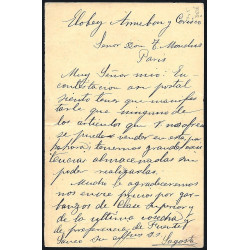 Elobey Annobon y Corisco
Señor Don F. Mondus
Paris
Muy Señor mio: En
contestacion a su postal
siento tener que manifes
tarle que ninguno de
los articulos que V nos ofrece
se puede vender en esta
tenemos grandes
almacenadas sin
poder realizarlas.
Mucho le agradeceremos
nos envie precios por gar
banzos de Clase Superior y
de la ultima cosecha y
de preferencia de Fuente
Sauco su affmo SS
Sagosta